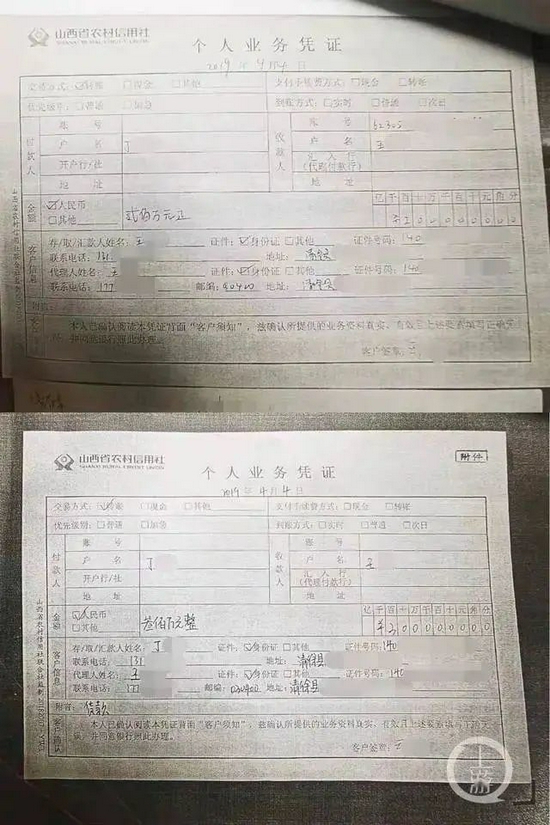 山西省农村信用社
SHANXI RURAL CREDIT UNION
个人业务凭证
2019年4月4日
交易方式:☑转账 □现金 □其他 支付手续费方式:□现金 □转账
优先级别:□普通 □加急 到账方式:□实时 □普通 □次日
付款人 收款人
账号 账号 62305
户名 丁 户名 王
开户行/社 汇入行(代理付款行)
地址 地址
金额 ☑人民币 □其他 贰佰万元正 亿千百十万千百十元角分
存/取/汇款人姓名:王 证件:☑身份证 □其他 证件号码:140
联系电话:131 地址:清徐县
代理人姓名:王 证件:☑身份证 □其他 证件号码:140
联系电话:177 邮编: 地址:清徐县
附言:
本人已确认阅读本凭证背面“客户须知”,兹确认所提供的业务资料真实、有效且上述要素填写正确无误,并同意银行照此办理。
客户签章:王
山西省农村信用社
SHANXI RURAL CREDIT UNION
附件
个人业务凭证
2019年4月4日
交易方式:☑转账 □现金 □其他 支付手续费方式:□现金 □转账
优先级别:□普通 □加急 到账方式:□实时 □普通 □次日
付款人 收款人
账号 账号
户名 丁 户名 王
开户行/社 汇入行(代理付款行)
地址 地址
金额 ☑人民币 □其他 叁佰万元整 亿千百十万千百十元角分
存/取/汇款人姓名:丁 证件:☑身份证 □其他 证件号码:140
联系电话:131 地址:清徐县
代理人姓名:王 证件:☑身份证 □其他 证件号码:140
联系电话:177 邮编:030400 地址:清徐县
附言:货款
本人已确认阅读本凭证背面“客户须知”,兹确认所提供的业务资料真实、有效且上述要素填写正确无误,并同意银行照此办理。
客户签章:王
上游